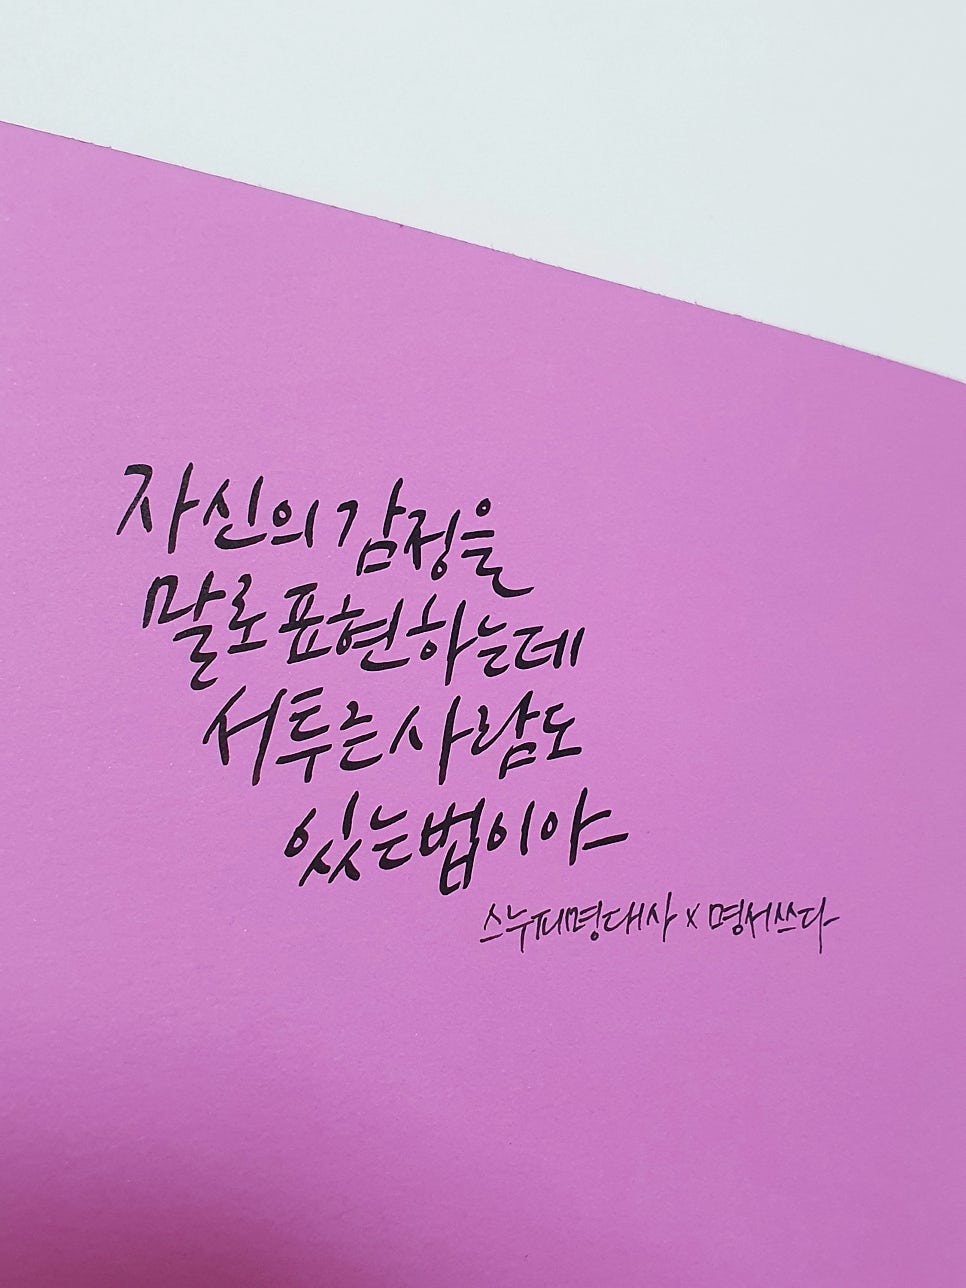 자신의 감정을
말로 표현하는데
서투른 사람도
있는 법이야
스누피명대사 x 명서쓰다